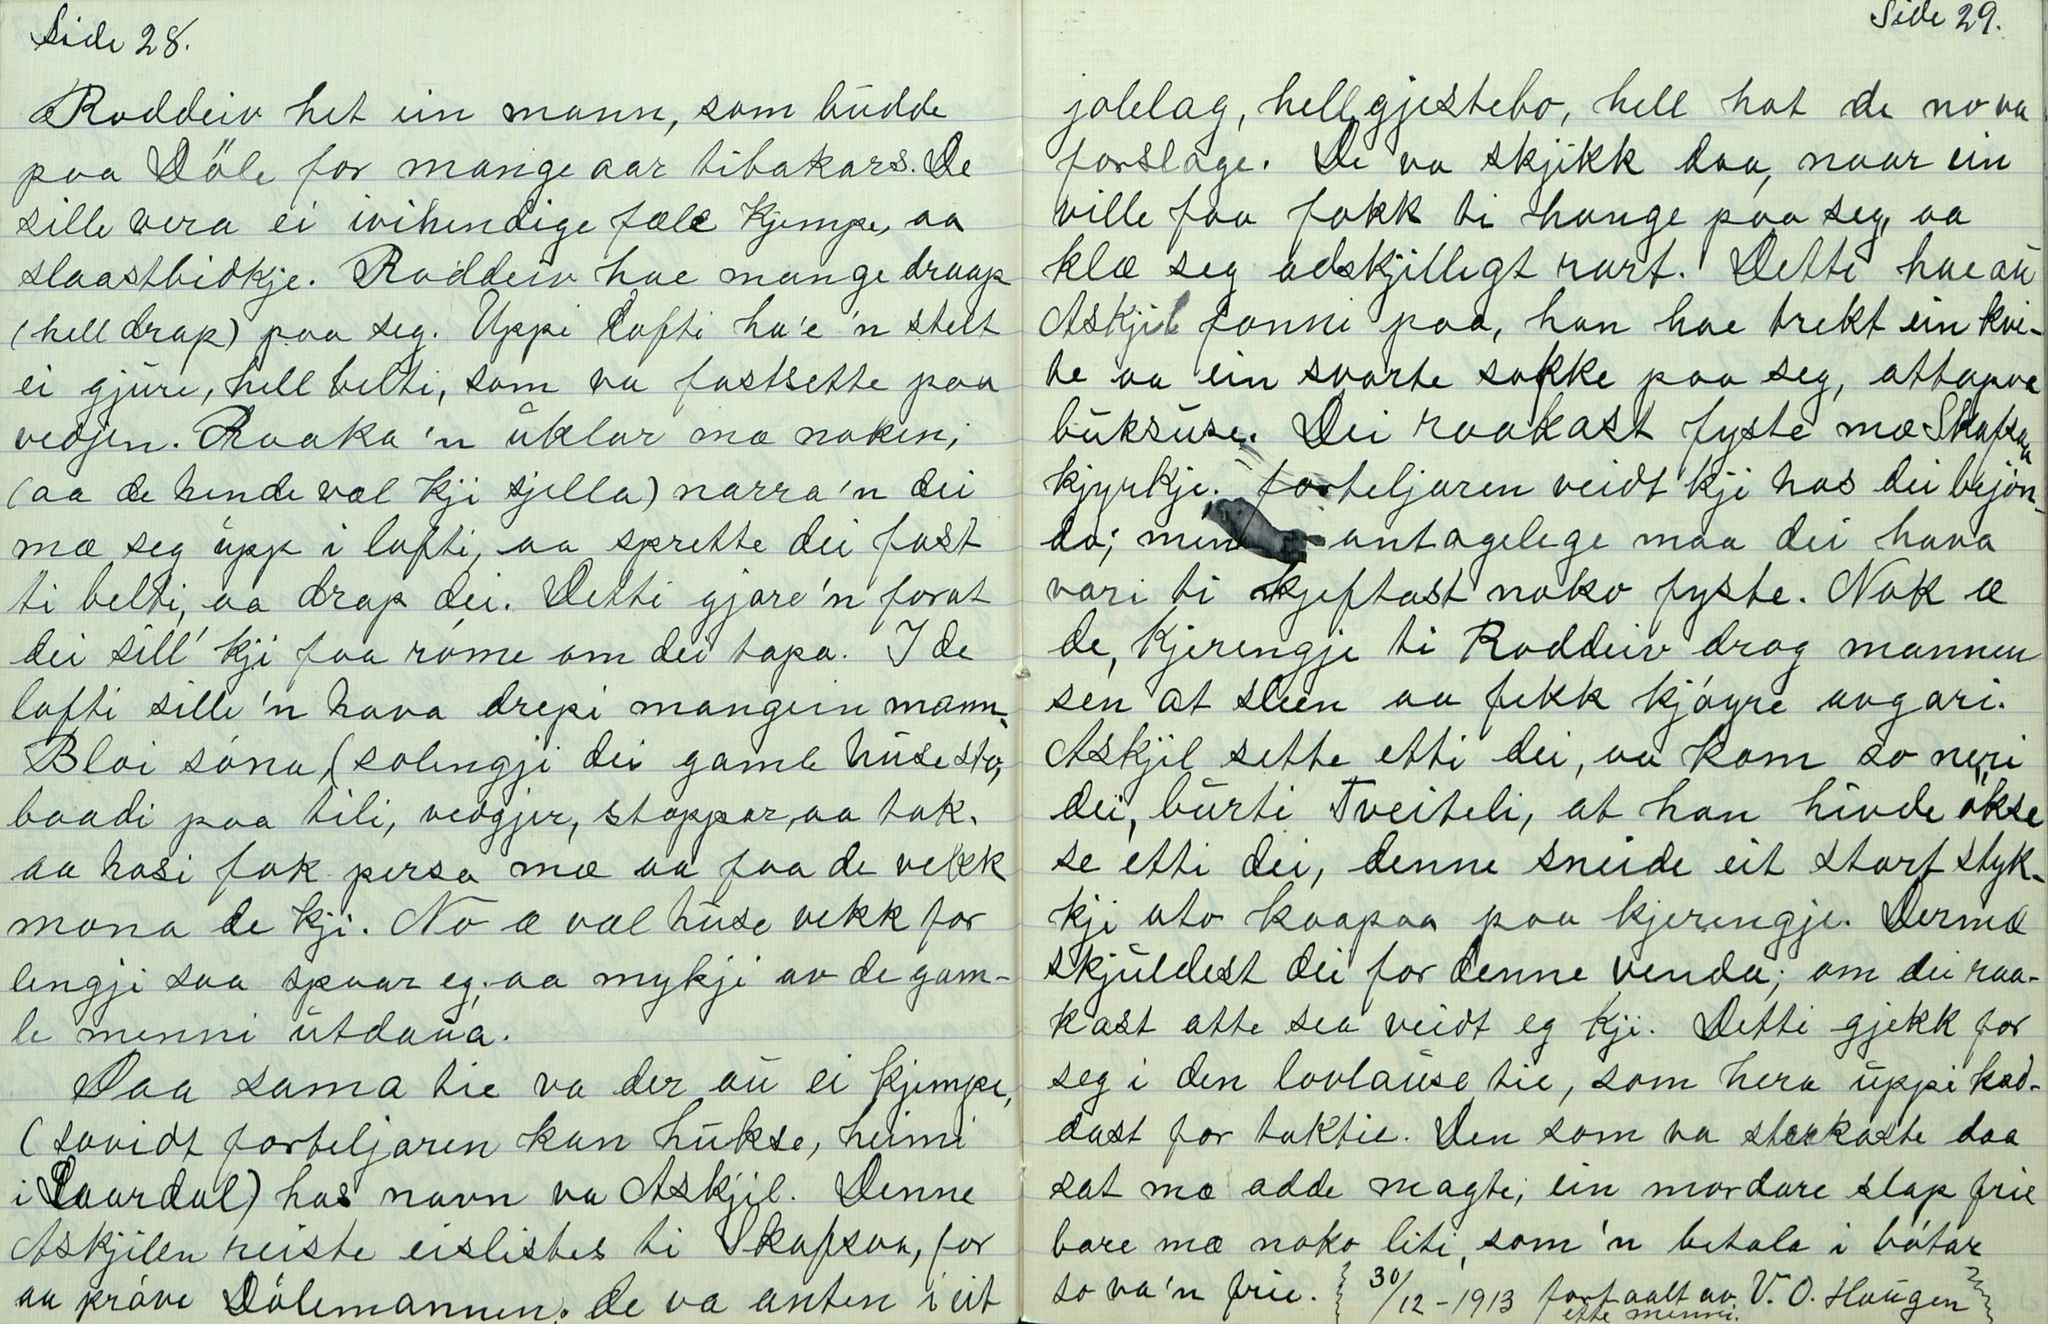 Side 28.
Roddeiv het ein mann, som budde
paa Döle for mange aar tibakars. De
sille vera ei ivihendige fæle kjempe, aa
slaastbidkje. Roddeiv hae mange draap
(hell drap) paa seg. Uppi lofti ha'e 'n stelt
ei gjure, hell belti, som va fastsette paa
vedjen. Raaka 'n üklar mæ noken;
(aa de hende væl kji sjella) narra'n dei
mæ seg üpp i lofti, aa sprette dei fast
ti belti, aa drap dei. Detti gjore'n forat
dei sill' kji faa róme om dei tapa. I de
lofti sille'n hava drepi mangein mann.
Bloi sóna, (solengji dei gamle húse sto,
baadi paa tili, vedgjer, stappar, aa tak.
aa hosi fok persa mæ aa faa de vekk
mona de kji. No æ væl húse vekk for
lengji saa spaar eg; aa mykji av de gam-
le menni útdaüa.
Paa sama tie va der aü ei kjempe,
(sovidt forteljaren kan hükse, heimi
i Laardal) has navn va Askjil. Denne
Askjilen reiste eislistes ti Skafsaa, for
aa pröve Dölemannen. de va anten i eit
Side 29.
jolelag, hell gjestebo, hell hot de no va
forslage. De va skjikk daa, naar ein
ville faa fokk ti hange paa seg, aa
klæ seg adskjilligt rart. Detti hae aü
Askjil fonni paa, han hae trekt ein kvi-
te aa ein svarte sokke paa seg, attapaa
büksüse. Dei raakast fyste mæ Skafsaa
kjyrkje. forteljaren veidt kji has dei bejön-
da; men antagelege maa dei hava
vori ti kjeftast noko fyste. Nok æ
de, kjerengje ti Roddeiv drog mannen
sen at sleen aa fekk kjóyre avgari.
Askjil sette etti dei, aa kom so neri
dei, bürti Tveiteli, at han hivde ökse
se etti dei, denne sneide eit stort styk-
kji uto kaapaa paa kjerengje. Dermæ
skjüldest dei for denne venda; om dei raa-
kast atte sea veidt eg kji. Detti gjekk for
seg i den lovlaüse tie, som hera üppi kad-
dast for taktie. Den som va sterkaste daa
sat mæ adde magte; ein mordare slap frie
bare mæ noko liti, som'n betala i bótar
so va'n frie. 30/12-1913 fortaalt av V. O. Haügen
ette menni.